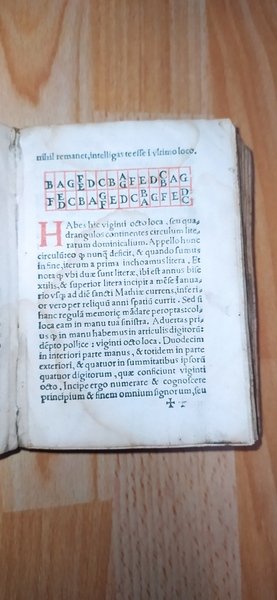 nihil remanet, intelligas te esse ī vltimo loco.
B A G F E D C B A G F E D C B A G
F E D C B A G F E D C B A G F E D C
HAbes hic viginti octo loca, seu qua
drangulos continentes circulum lite
rarum dominicalium. Appello hunc
circulū eo ꝙ nunꝗ deficit, & quando sumus
in fine, iterum a prima inchoamus litera. Et
nota ꝙ vbi duæ sunt literæ, ibi est annus bise
xtilis, & superior litera incipit a mense Ianua
rio vsꝗ ad diē sancti Mathiæ currens, inferi
or vero pet reliquū anni spatiū currit. Sed si
hanc regulā memorię mādare peroptas: col
loca eam in manu tua sinistra. Aduertas pri
us ꝙ in manu habemus in articulis digitorū
dēpto pollice: viginti octo loca. Duodecim
in interiori parte manus, & totidem in parte
exteriori, & quatuor in summitatibus ipsorū
quatuor digitorum, quæ conficiunt viginti
octo. Incipe ergo numerare & cognoscere
principium & finem omnium signorum, seu